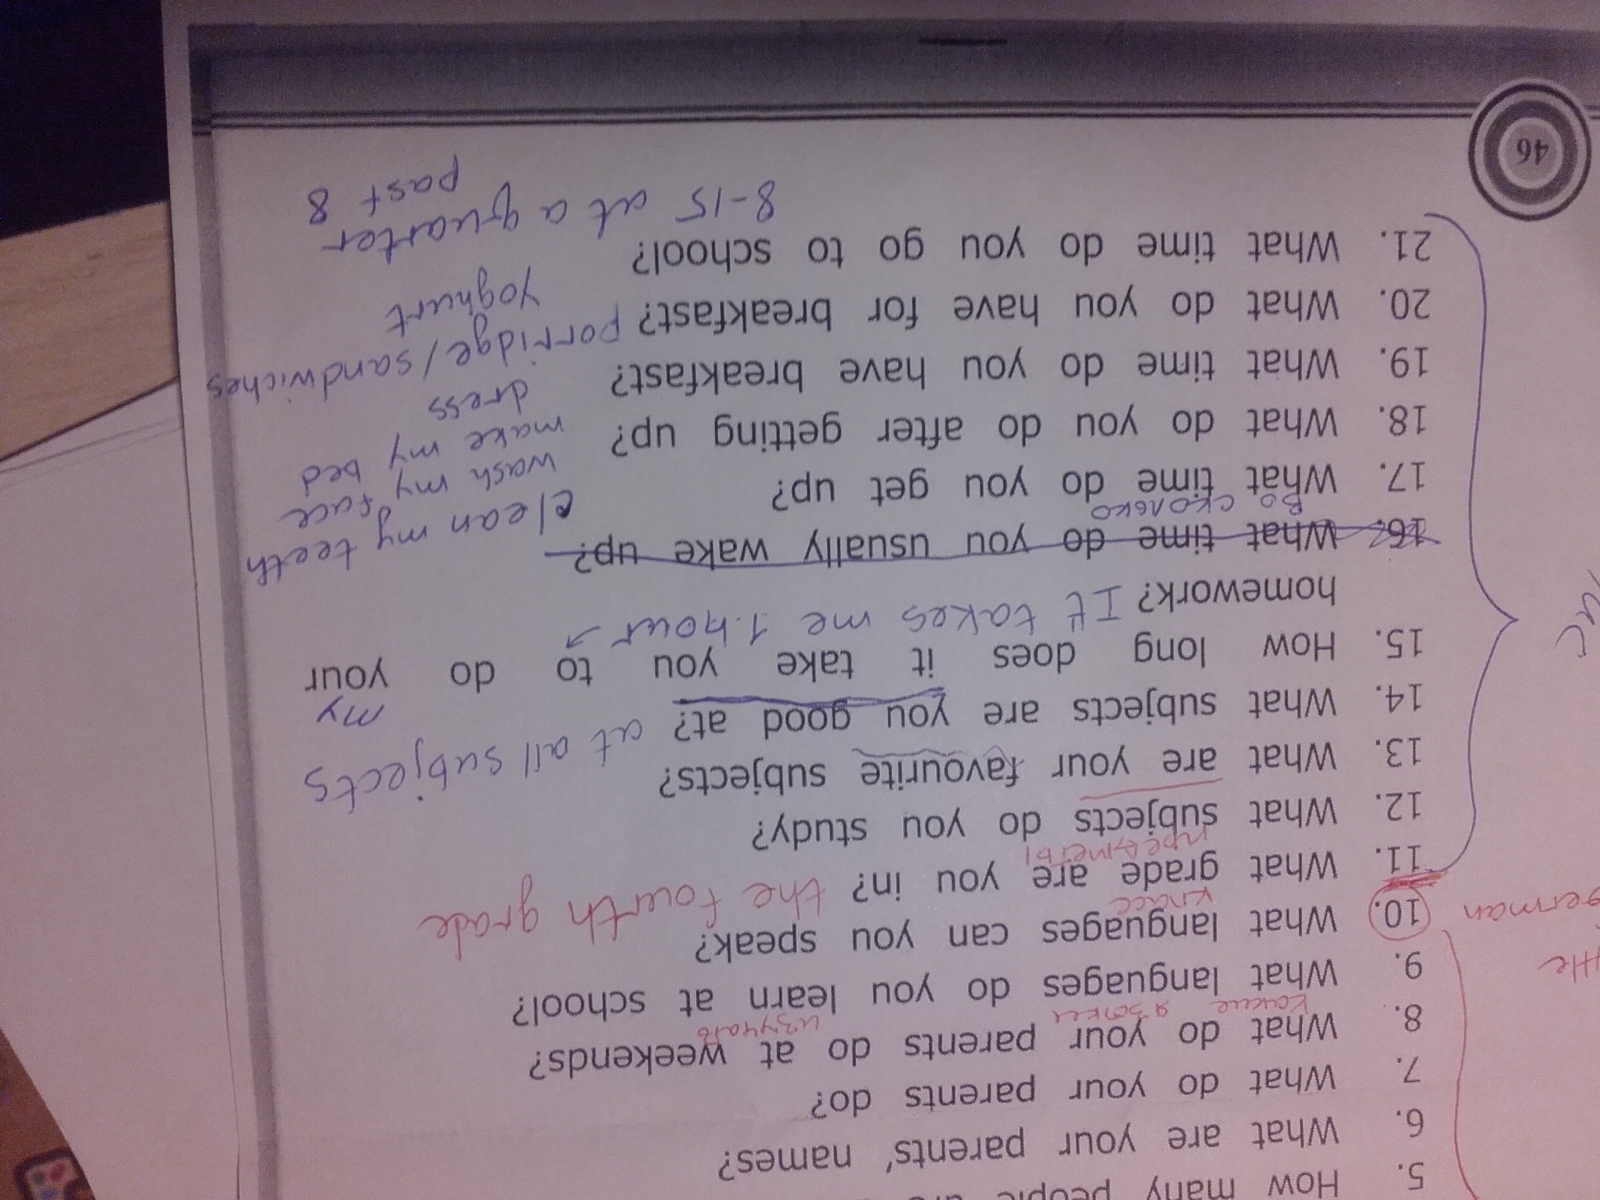 5. How many people
6. What are your parents' names?
7. What do your parents do?
8. What do your parents do at weekends?
какие языки изучать
9. What languages do you learn at school?
10. What languages can you speak?
german
класс
11. What grade are you in? the fourth grade
предметы
12. What subjects do you study?
13. What are your favourite subjects?
14. What subjects are you good at? at all subjects
my
15. How long does it take you to do your
homework? It takes me 1 hour
16. What time do you usually wake up?
во сколько
17. What time do you get up?
clean my teeth
wash my face
18. What do you do after getting up?
make my bed
dress
19. What time do you have breakfast?
20. What do you have for breakfast? porridge/sandwiches
yoghurt
21. What time do you go to school?
8-15 at a quarter
past 8
46